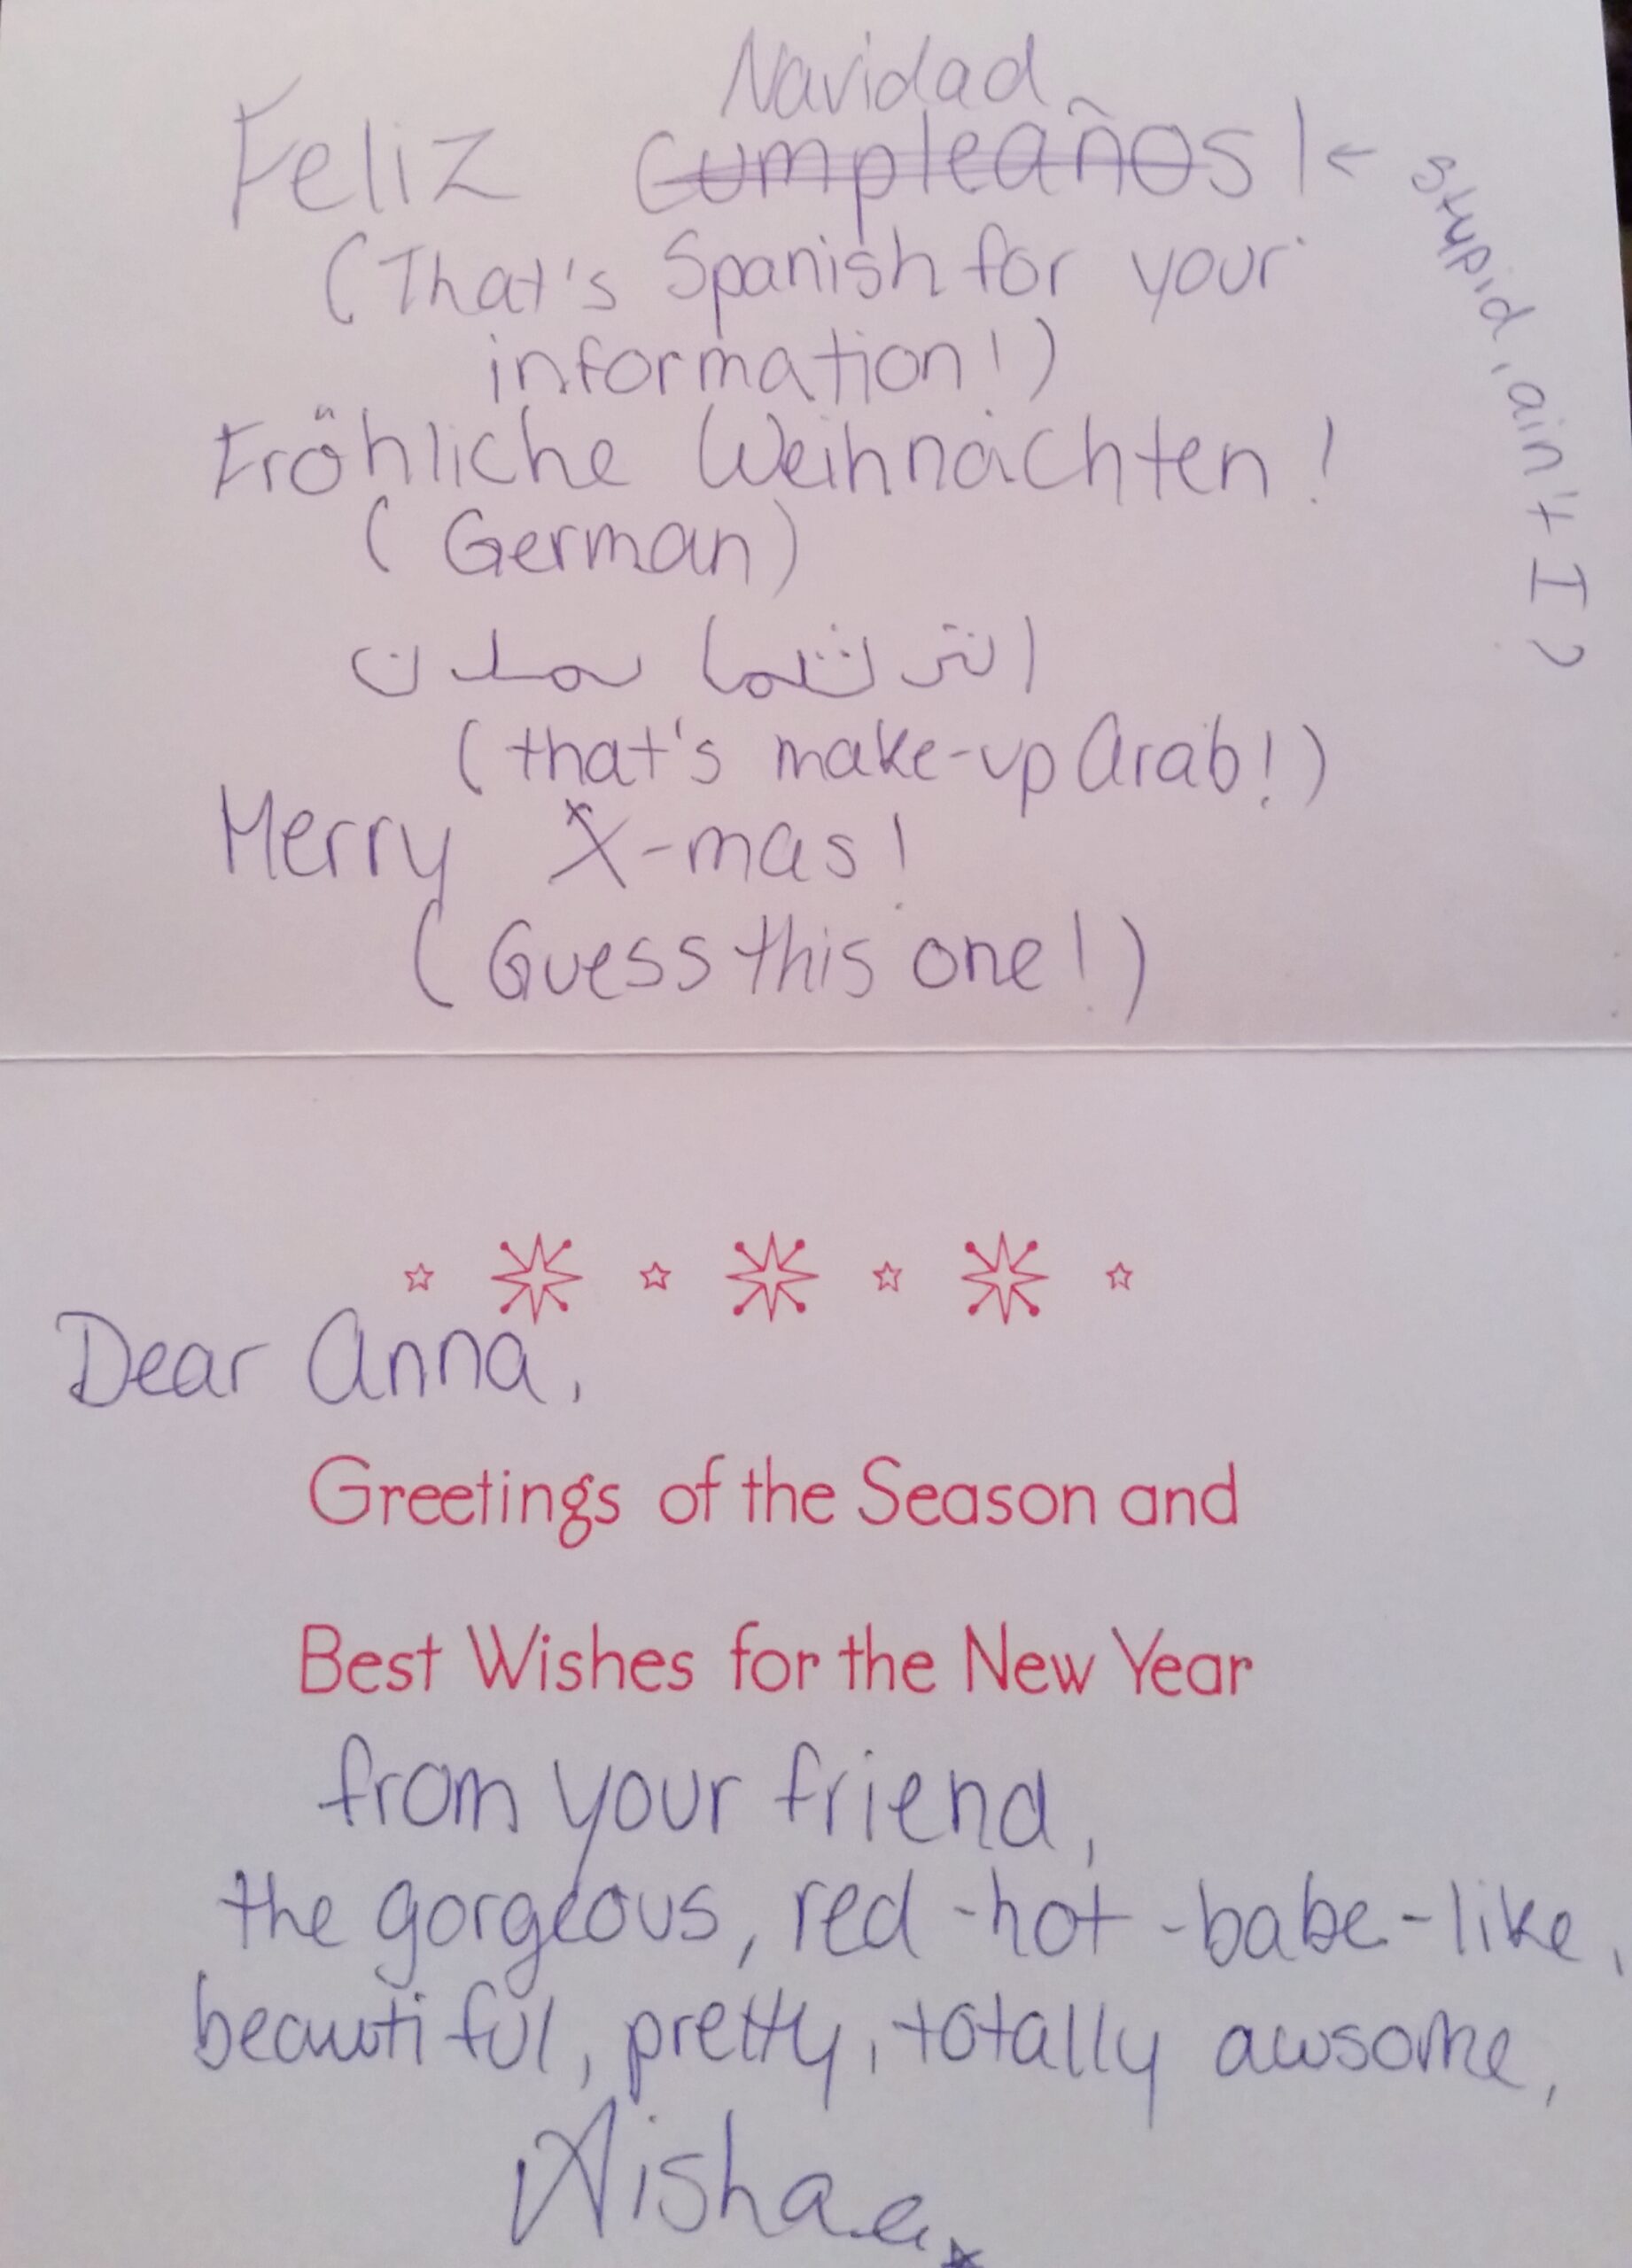 Navidad
Feliz Cumpleaños! ← stupid, ain't I?
(That's Spanish for your
information!)
Fröhliche Weihnachten!
(German)
(that's make-up Arab!)
Merry X-mas!
(Guess this one!)
Dear Anna,
Greetings of the Season and
Best Wishes for the New Year
from your friend,
the gorgeous, red-hot-babe-like,
beautiful, pretty, totally awsome,
Aisha